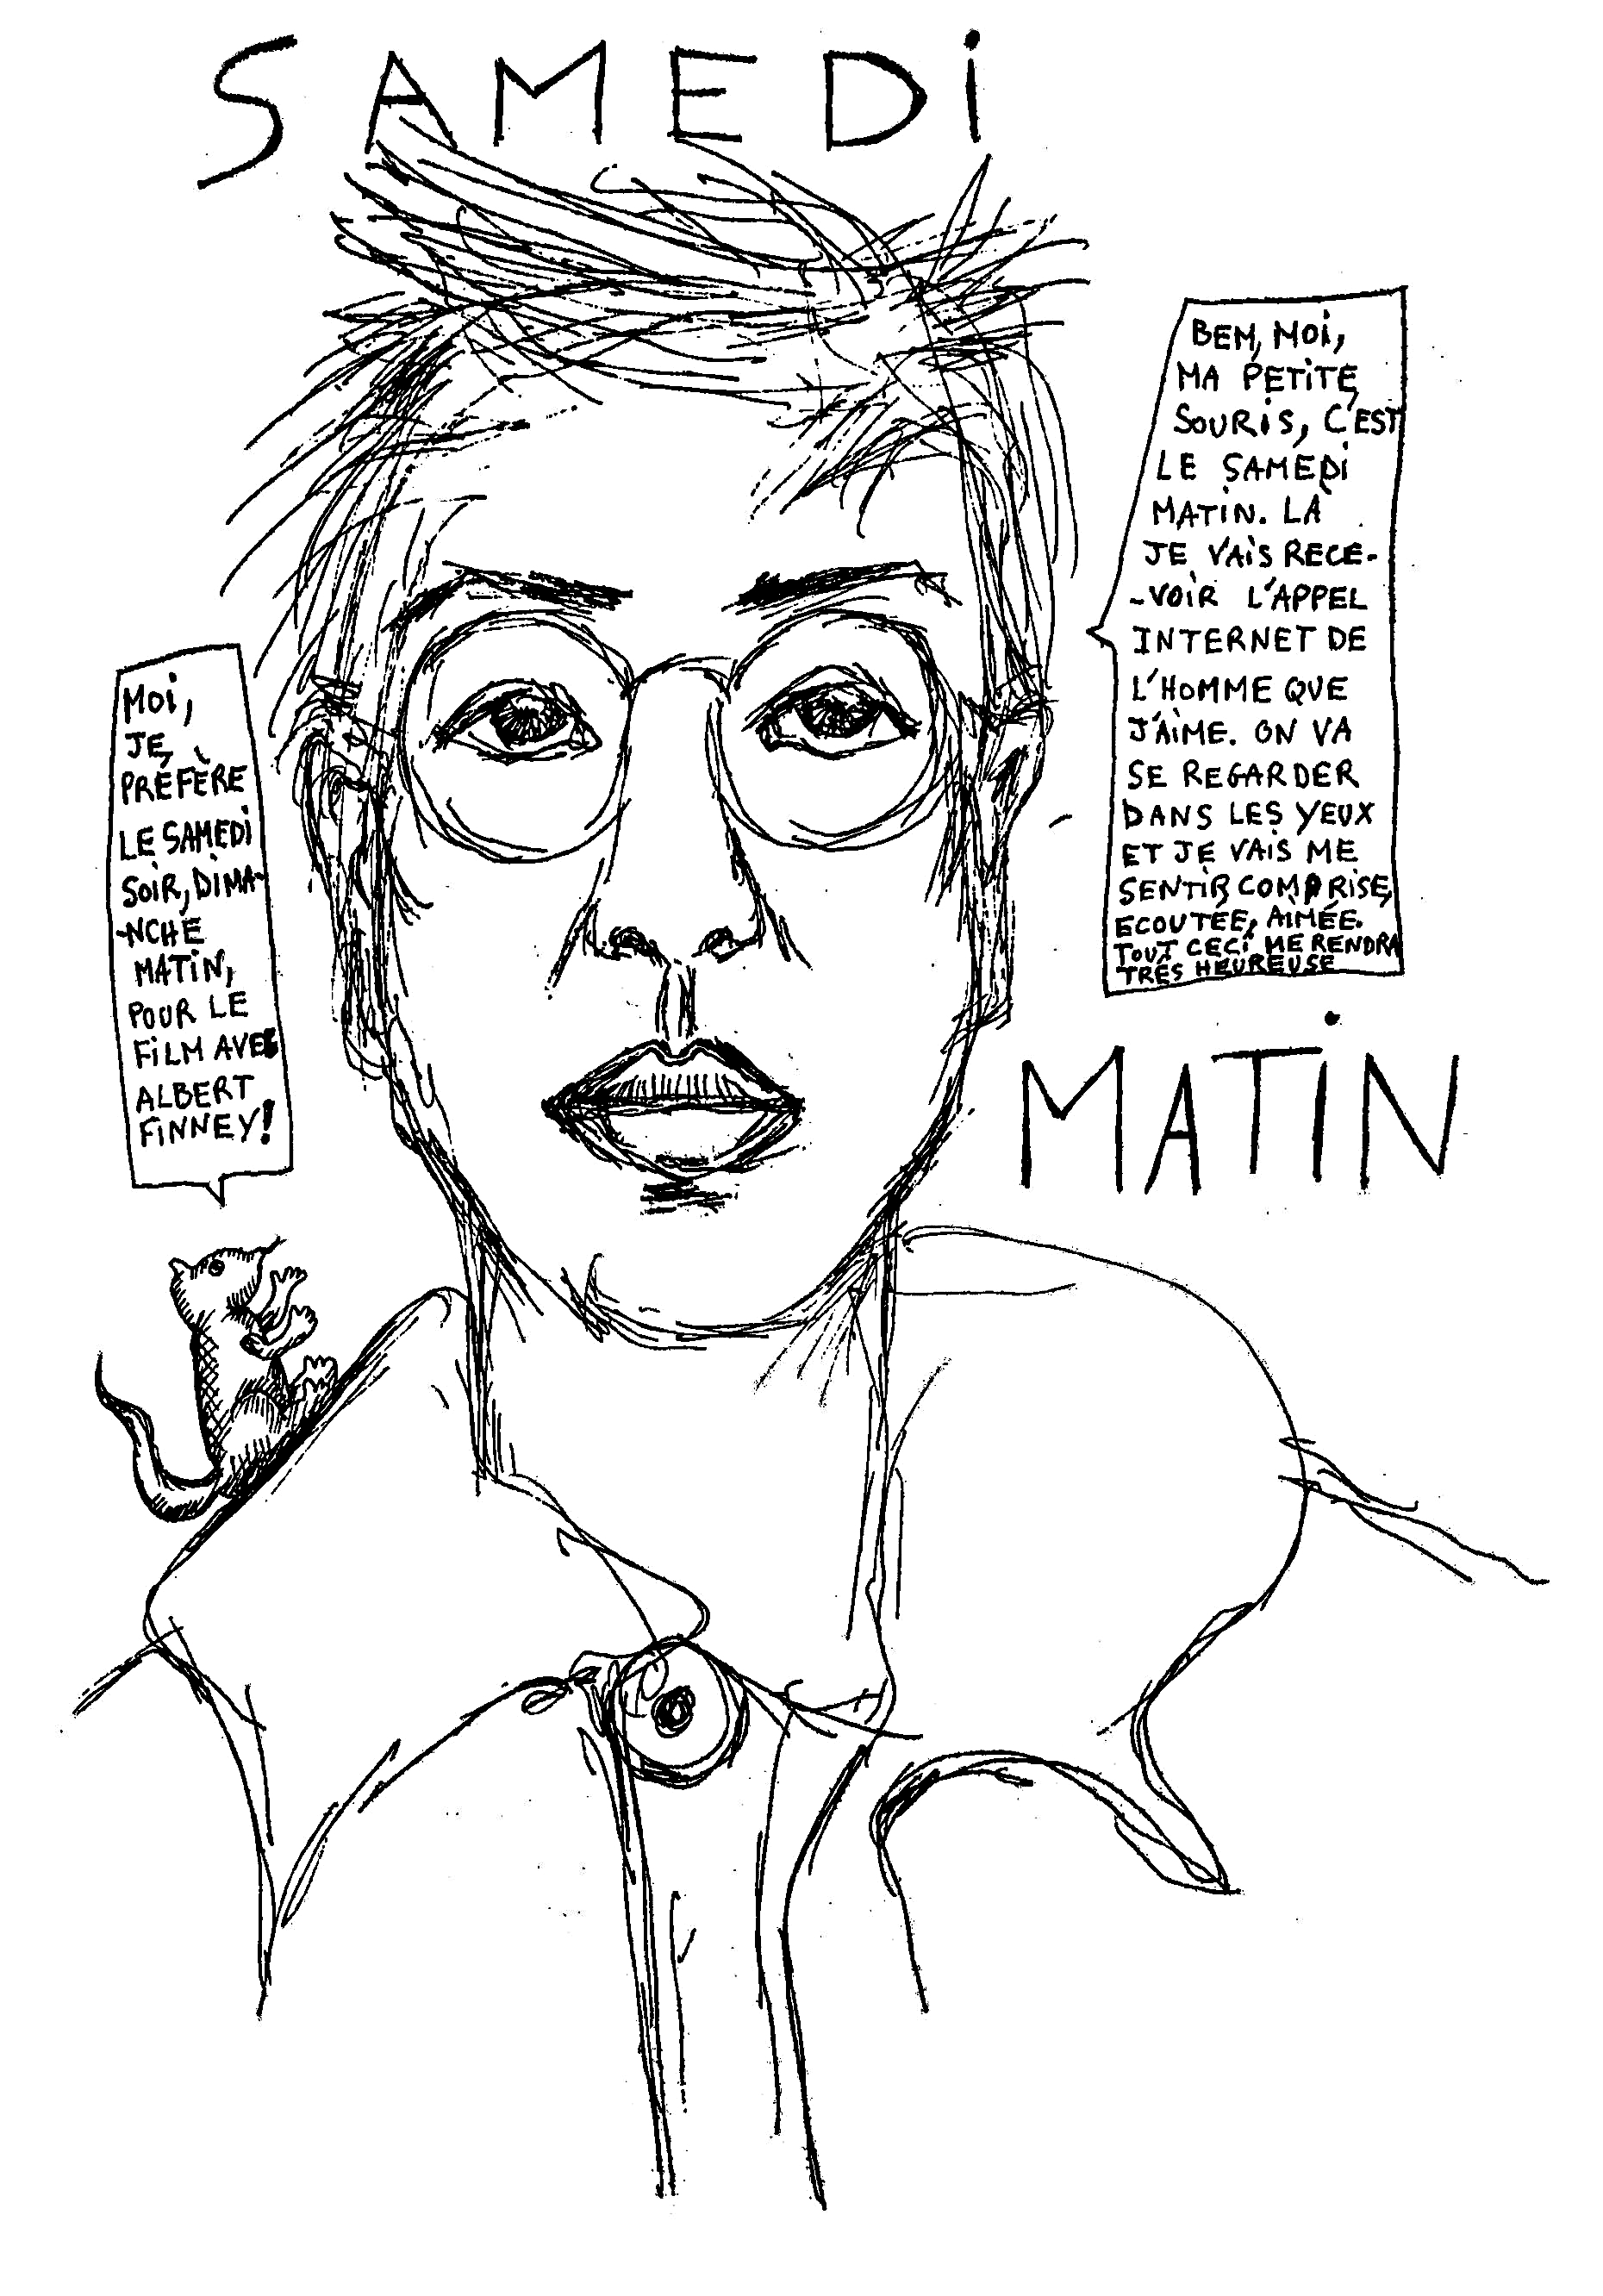 SAMEDi
MOi,
JE
PRÉFÈRE
LE SAMEDi
SOiR, DiMA-
-NCHE
MATiN,
POUR LE
FiLM AVEC
ALBERT
FiNNEY!
BEM, MOi,
MA PETiTE
SOURiS, C'EST
LE SAMEDi
MATiN. LÀ
JE VAiS RECE-
-VOiR L'APPEL
INTERNET DE
L'HOMME QUE
J'AiME. ON VA
SE REGARDER
DANS LES YEUX
ET JE VAiS ME
SENTiR COMPRiSE,
ECOUTÉE, AiMÉE.
TOUT CECi ME RENDRA
TRÉS HEUREUSE
MATiN